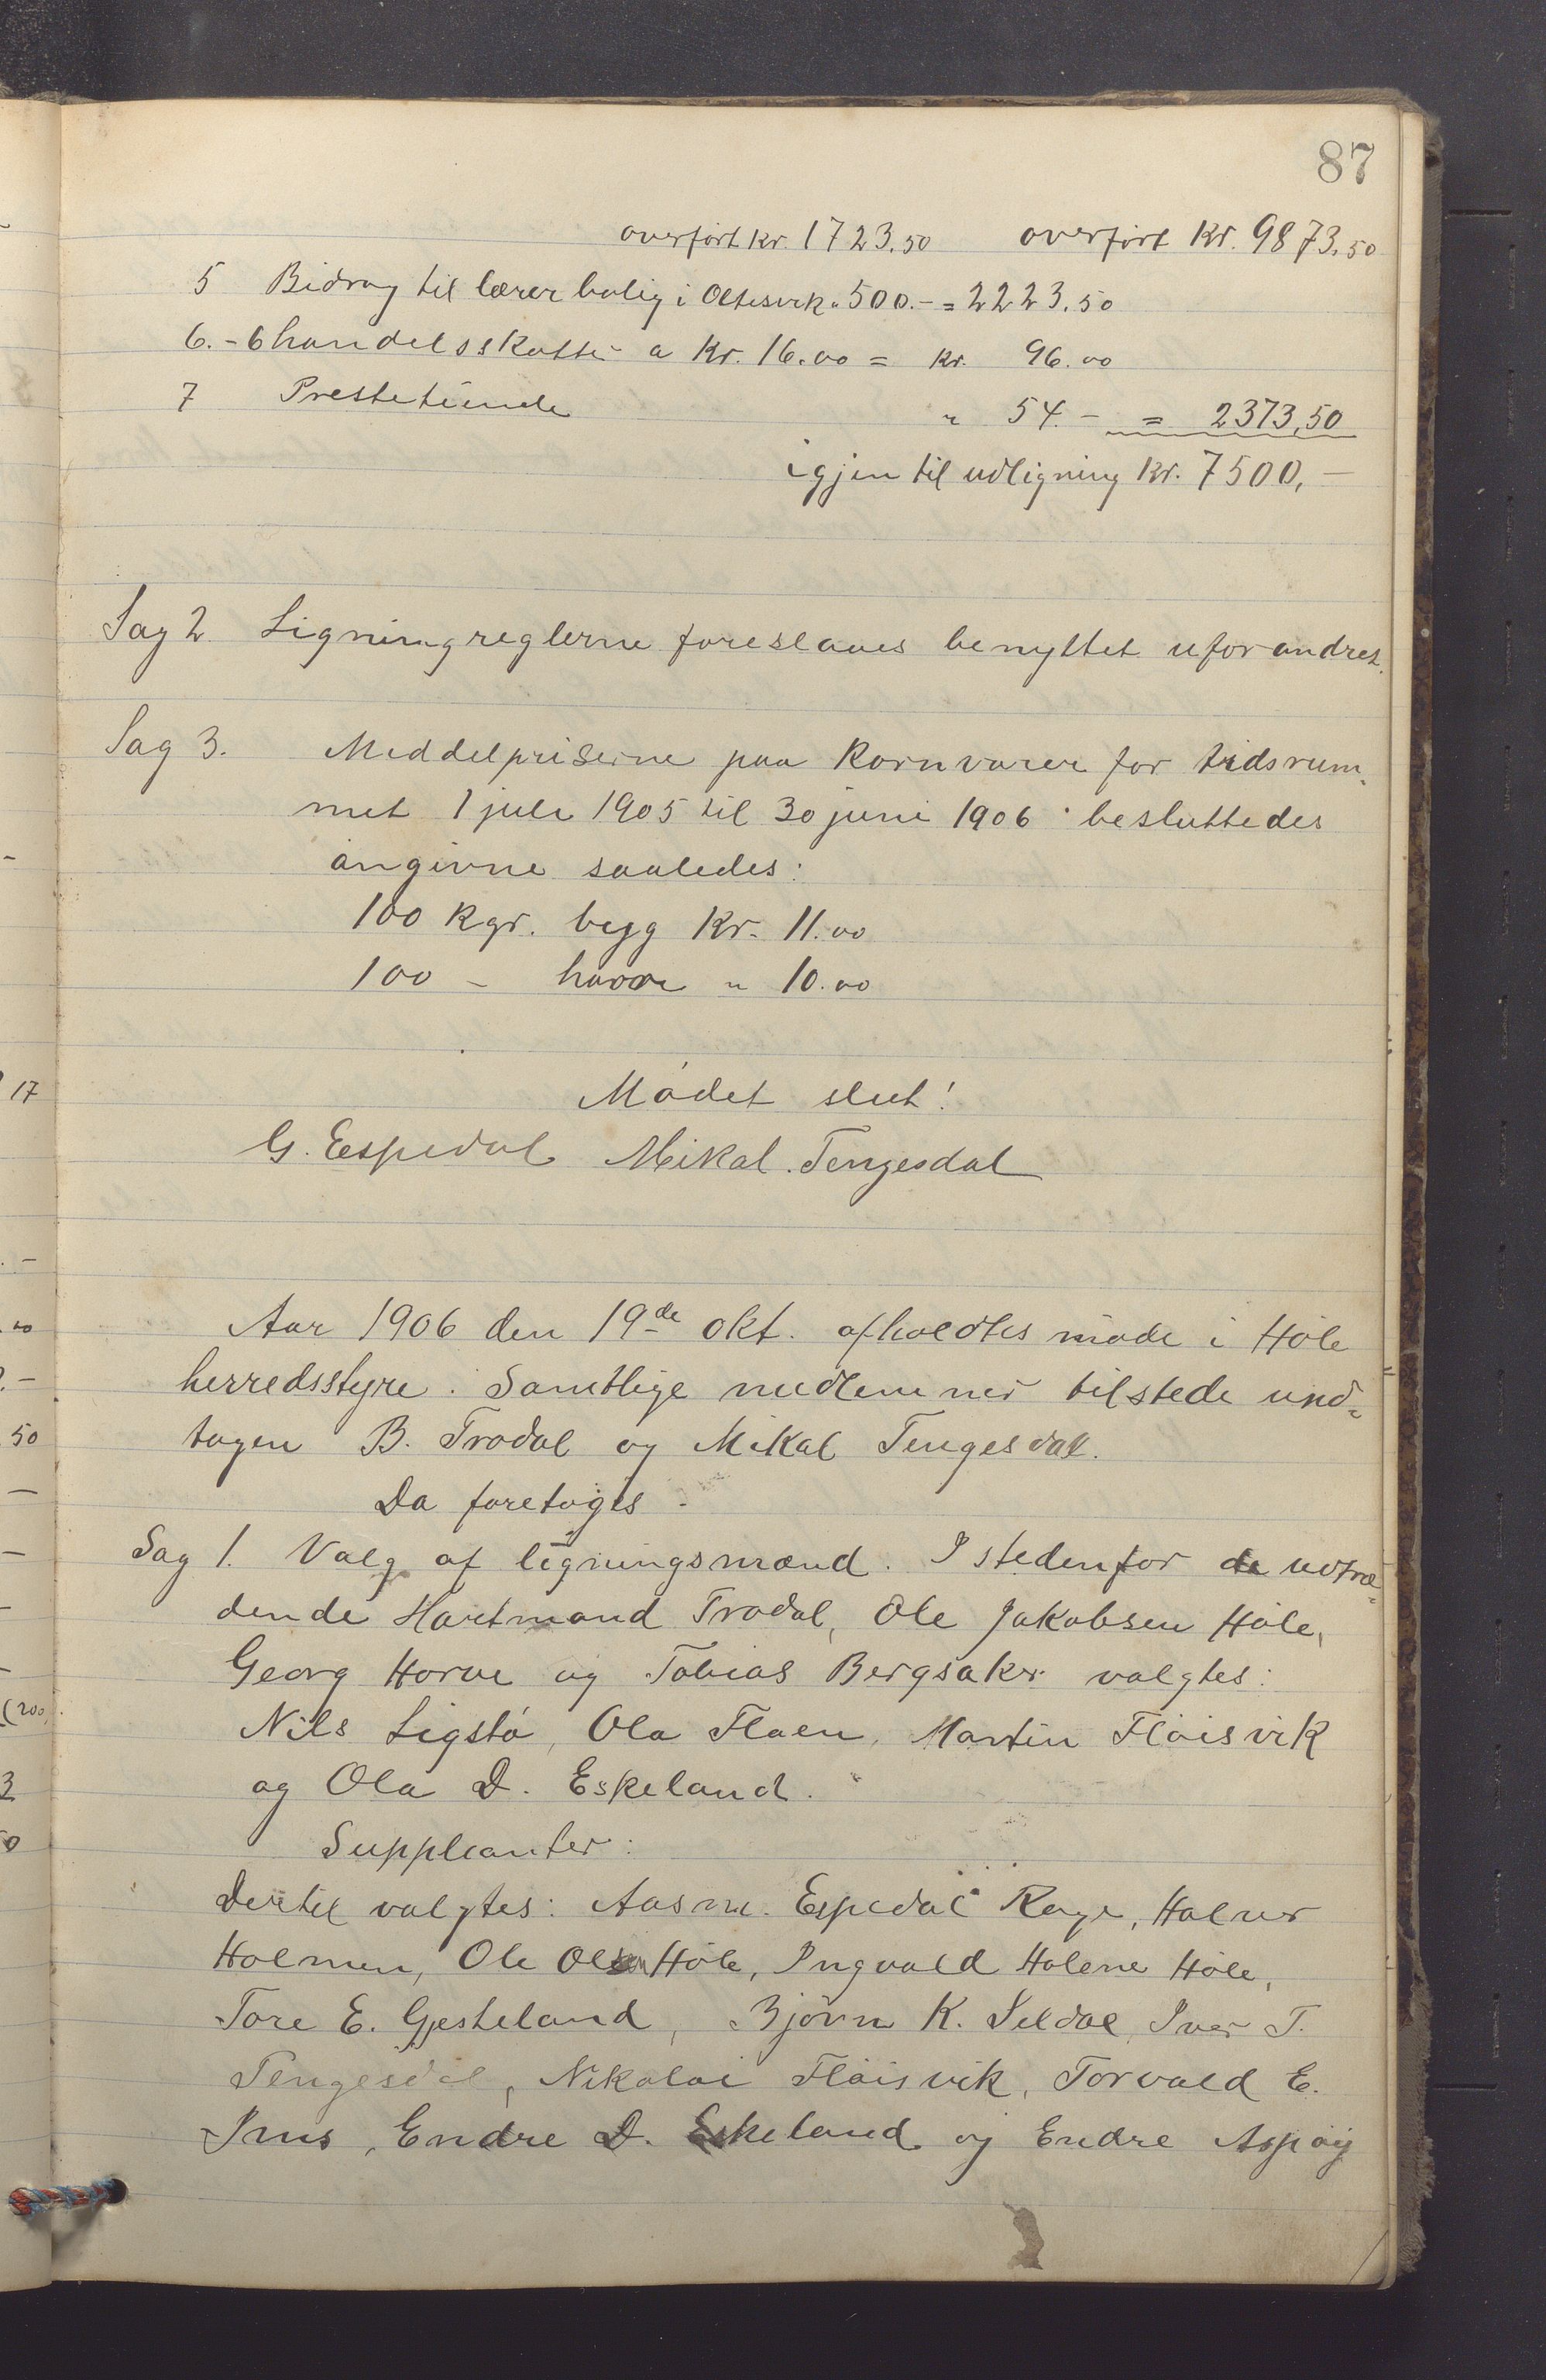 87
overført kr. 1723.50 overført kr. 9873.50
5 Bidrag til lærerbolig i Oltesvik " 500.- = 2223.50
6. - 6 handelsskatte a kr. 16.00 = kr. 96.00
7 Prestetiende " 54.- = 2373,50
igjen til udligning kr. 7500,-
Sag 2 Ligningreglerne foreslaaes benyttet uforandret.
Sag 3. Middelpriserne paa kornvarer for tidsrum-
met 1 juli 1905 til 30 juni 1906 besluttedes
angivne saaledes:
100 kgr. bygg kr. 11.00
100 - havre " 10.00
Mødet slut!
G. Eespedal Mikal Tengesdal
Aar 1906 den 19de okt. afholdtes møde i Høle
herredsstyre. Samtlige medlemmer tilstede und-
tagen B. Trodal og Mikal Tengesdal.
Da foretoges.
Sag 1. Valg af ligningsmænd. I stedenfor de udtræ-
dende Hartmand Trodal, Ole Jakobsen Høle,
Georg Horve og Tobias Bergsaker valgtes:
Nils Ligstø, Ola Flaen, Martin Fløisvik
og Ola D. Eskeland.
Suppleanter:
Dertil valgtes: Aasm. Espedal Rage, Halvor
Holmen, Ole Olsen Høle, Ingvald Holene Høle,
Tore E. Gjesteland, Bjørn K. Seldal, Iver T.
Tengesdal, Nikolai Fløisvik, Torvald E.
Ims, Endre D. Eskeland og Endre Aspøy
17
50
(200,
3